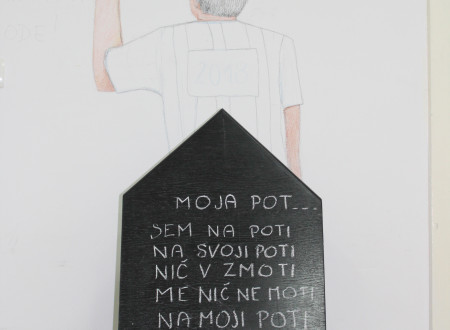 MOJA POT...
SEM NA POTI
NA SVOJI POTI
NIČ V ZMOTI
ME NIČ NE MOTI
NA MOJI POTI